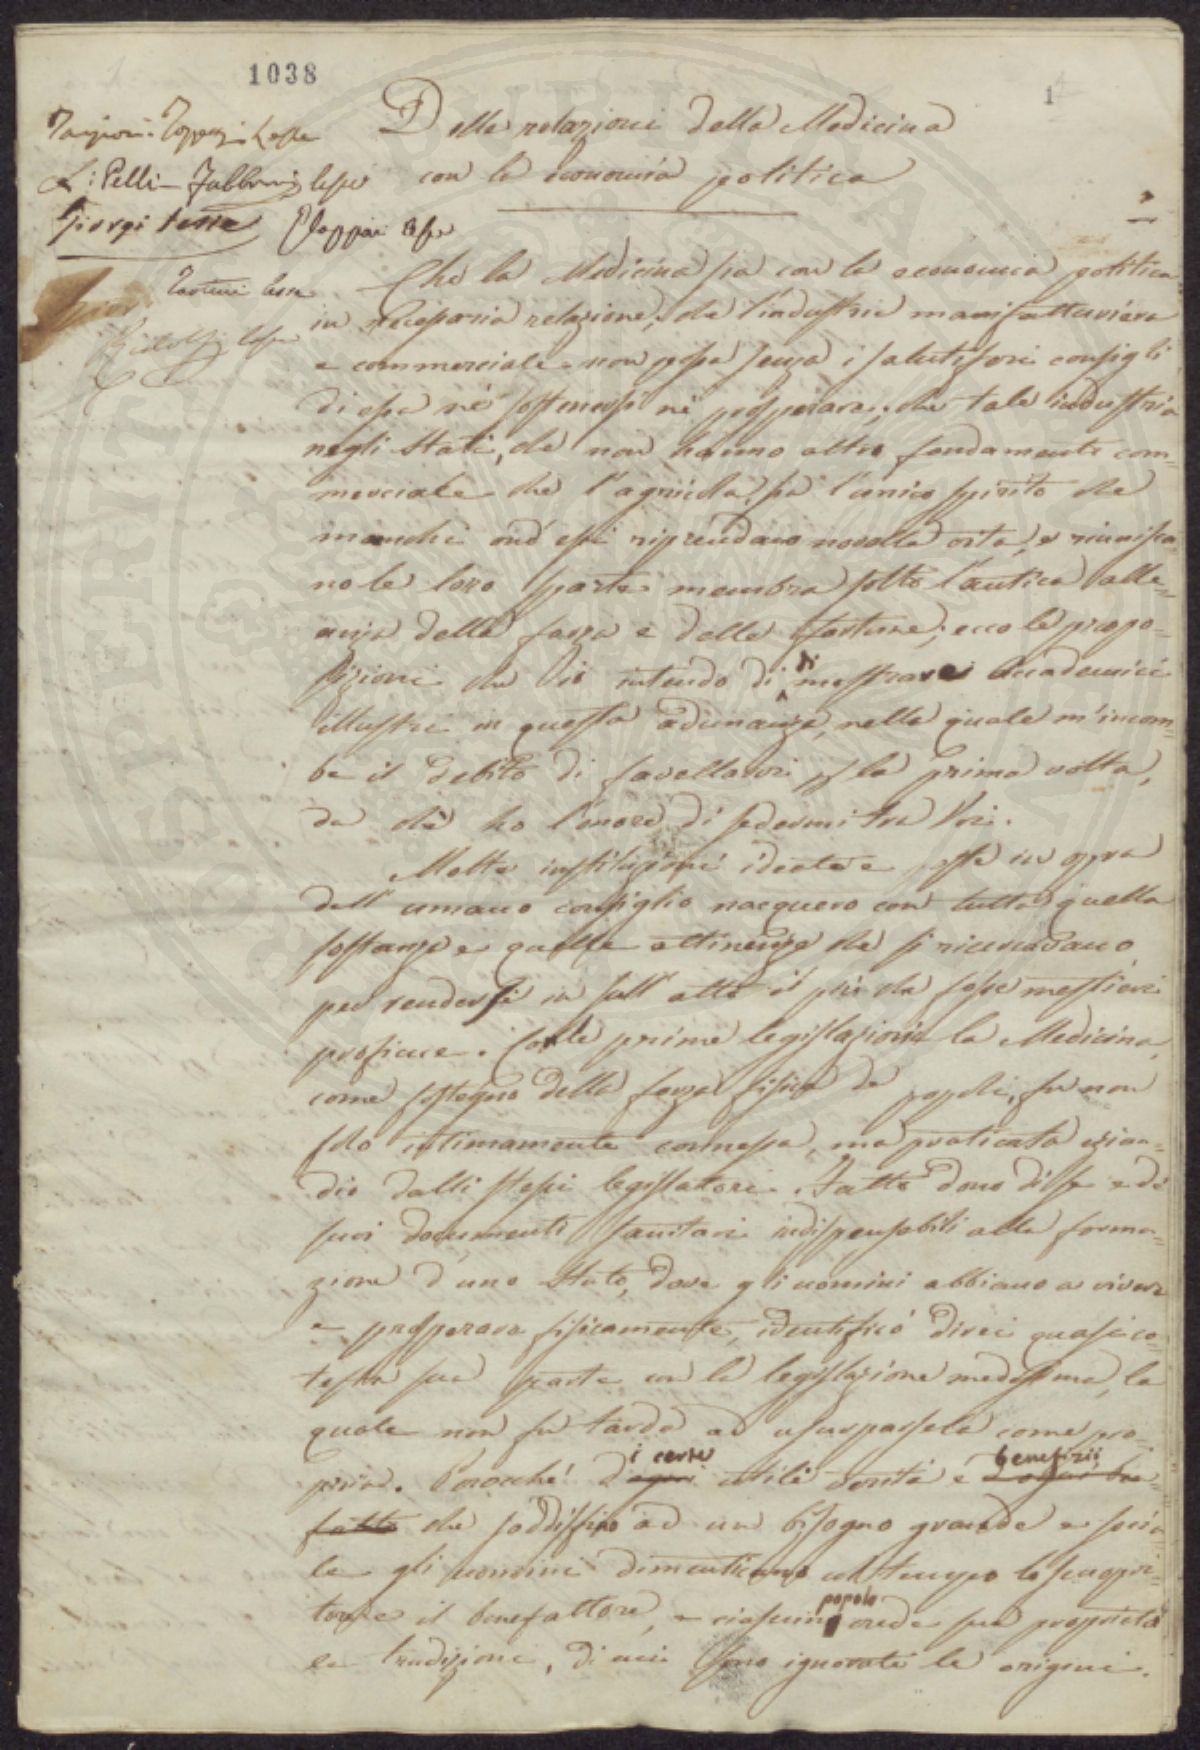 1038
1
Delle relazioni della Medicina
con la economia politica
Targioni Tozzetti Lesse
L: Pelli-Fabbroni lesse
Giorgi lesse
Tartini lesse
Ridolfi lesse
Che la Medicina sia con la economia politica
in necessaria relazione; che l'industria manifatturiera
e commerciale non possa senza i salutiferi consigli
di essa né sostenersi né prosperare; che tale industria
negli Stati, che non hanno altro fondamento com-
merciale che l'agricola, sia l'unico spirito che
manchi ond'essi riprendano novella vita, e riunisca-
no le loro sparte membra sotto l'antica alle-
anza della forza e delle fortune; ecco le propo-
sizioni che Io intendo di dimostrarvi Accademici
illustri in questa adunanza, nella quale m'incom-
be il debito di favellarvi p la prima volta,
da che ho l'onore di sedermi tra Voi.
Molte instituzioni ideate e poste in opra
dall'umano consiglio nacquero con tutta quella
sostanza e quelle attinenze che si ricercavano
per rendersi in sull'atto il più che fosse mestieri
proficue. Con le prime legislazioni la Medicina,
come sostegno della forza fisica de popoli, fu non
solo intimamente connessa, ma praticata ezian-
dio dalli stessi legislatori. Fatto dono di se e di
suoi documenti sanitari indispensabili alla forma-
zione d'uno Stato, dove gli uomini abbiano a vivere
e prosperare fisicamente, identificò direi quasi co-
testa sua parte con la legislazione medesima, la
quale non fu tarda ad usurparsela come pro-
pria. Perocché di certe utili verità e benefizii
che soddisfino ad un bisogno grande e socia
le gli uomini dimenticano col tempo lo scopri-
tore e il benefattore, e ciascun popolo crede sua proprietà
la tradizione, di cui sono ignorate le origini.